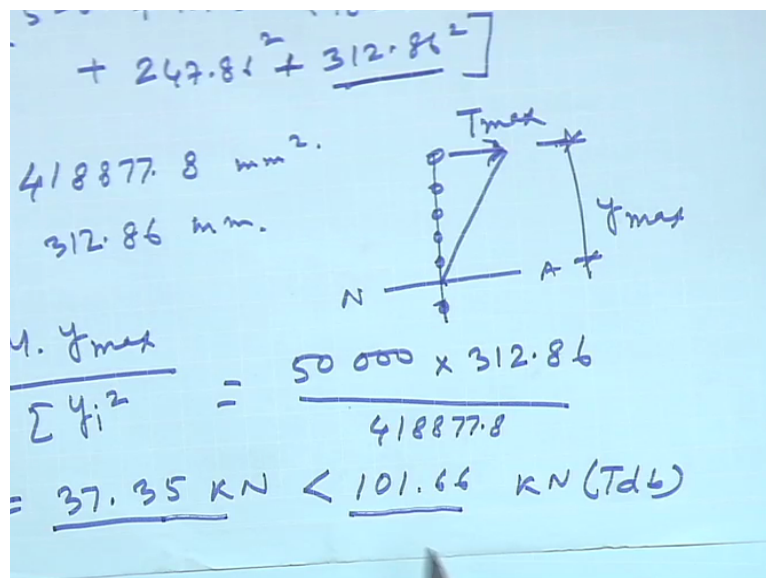 + 247.86² + 312.86²]
418877.8 mm².
312.86 mm.
Tmax
ymax
N A
M. ymax / Σ yi² = 50 000 x 312.86 / 418877.8
= 37.35 KN < 101.66 KN (Tdb)